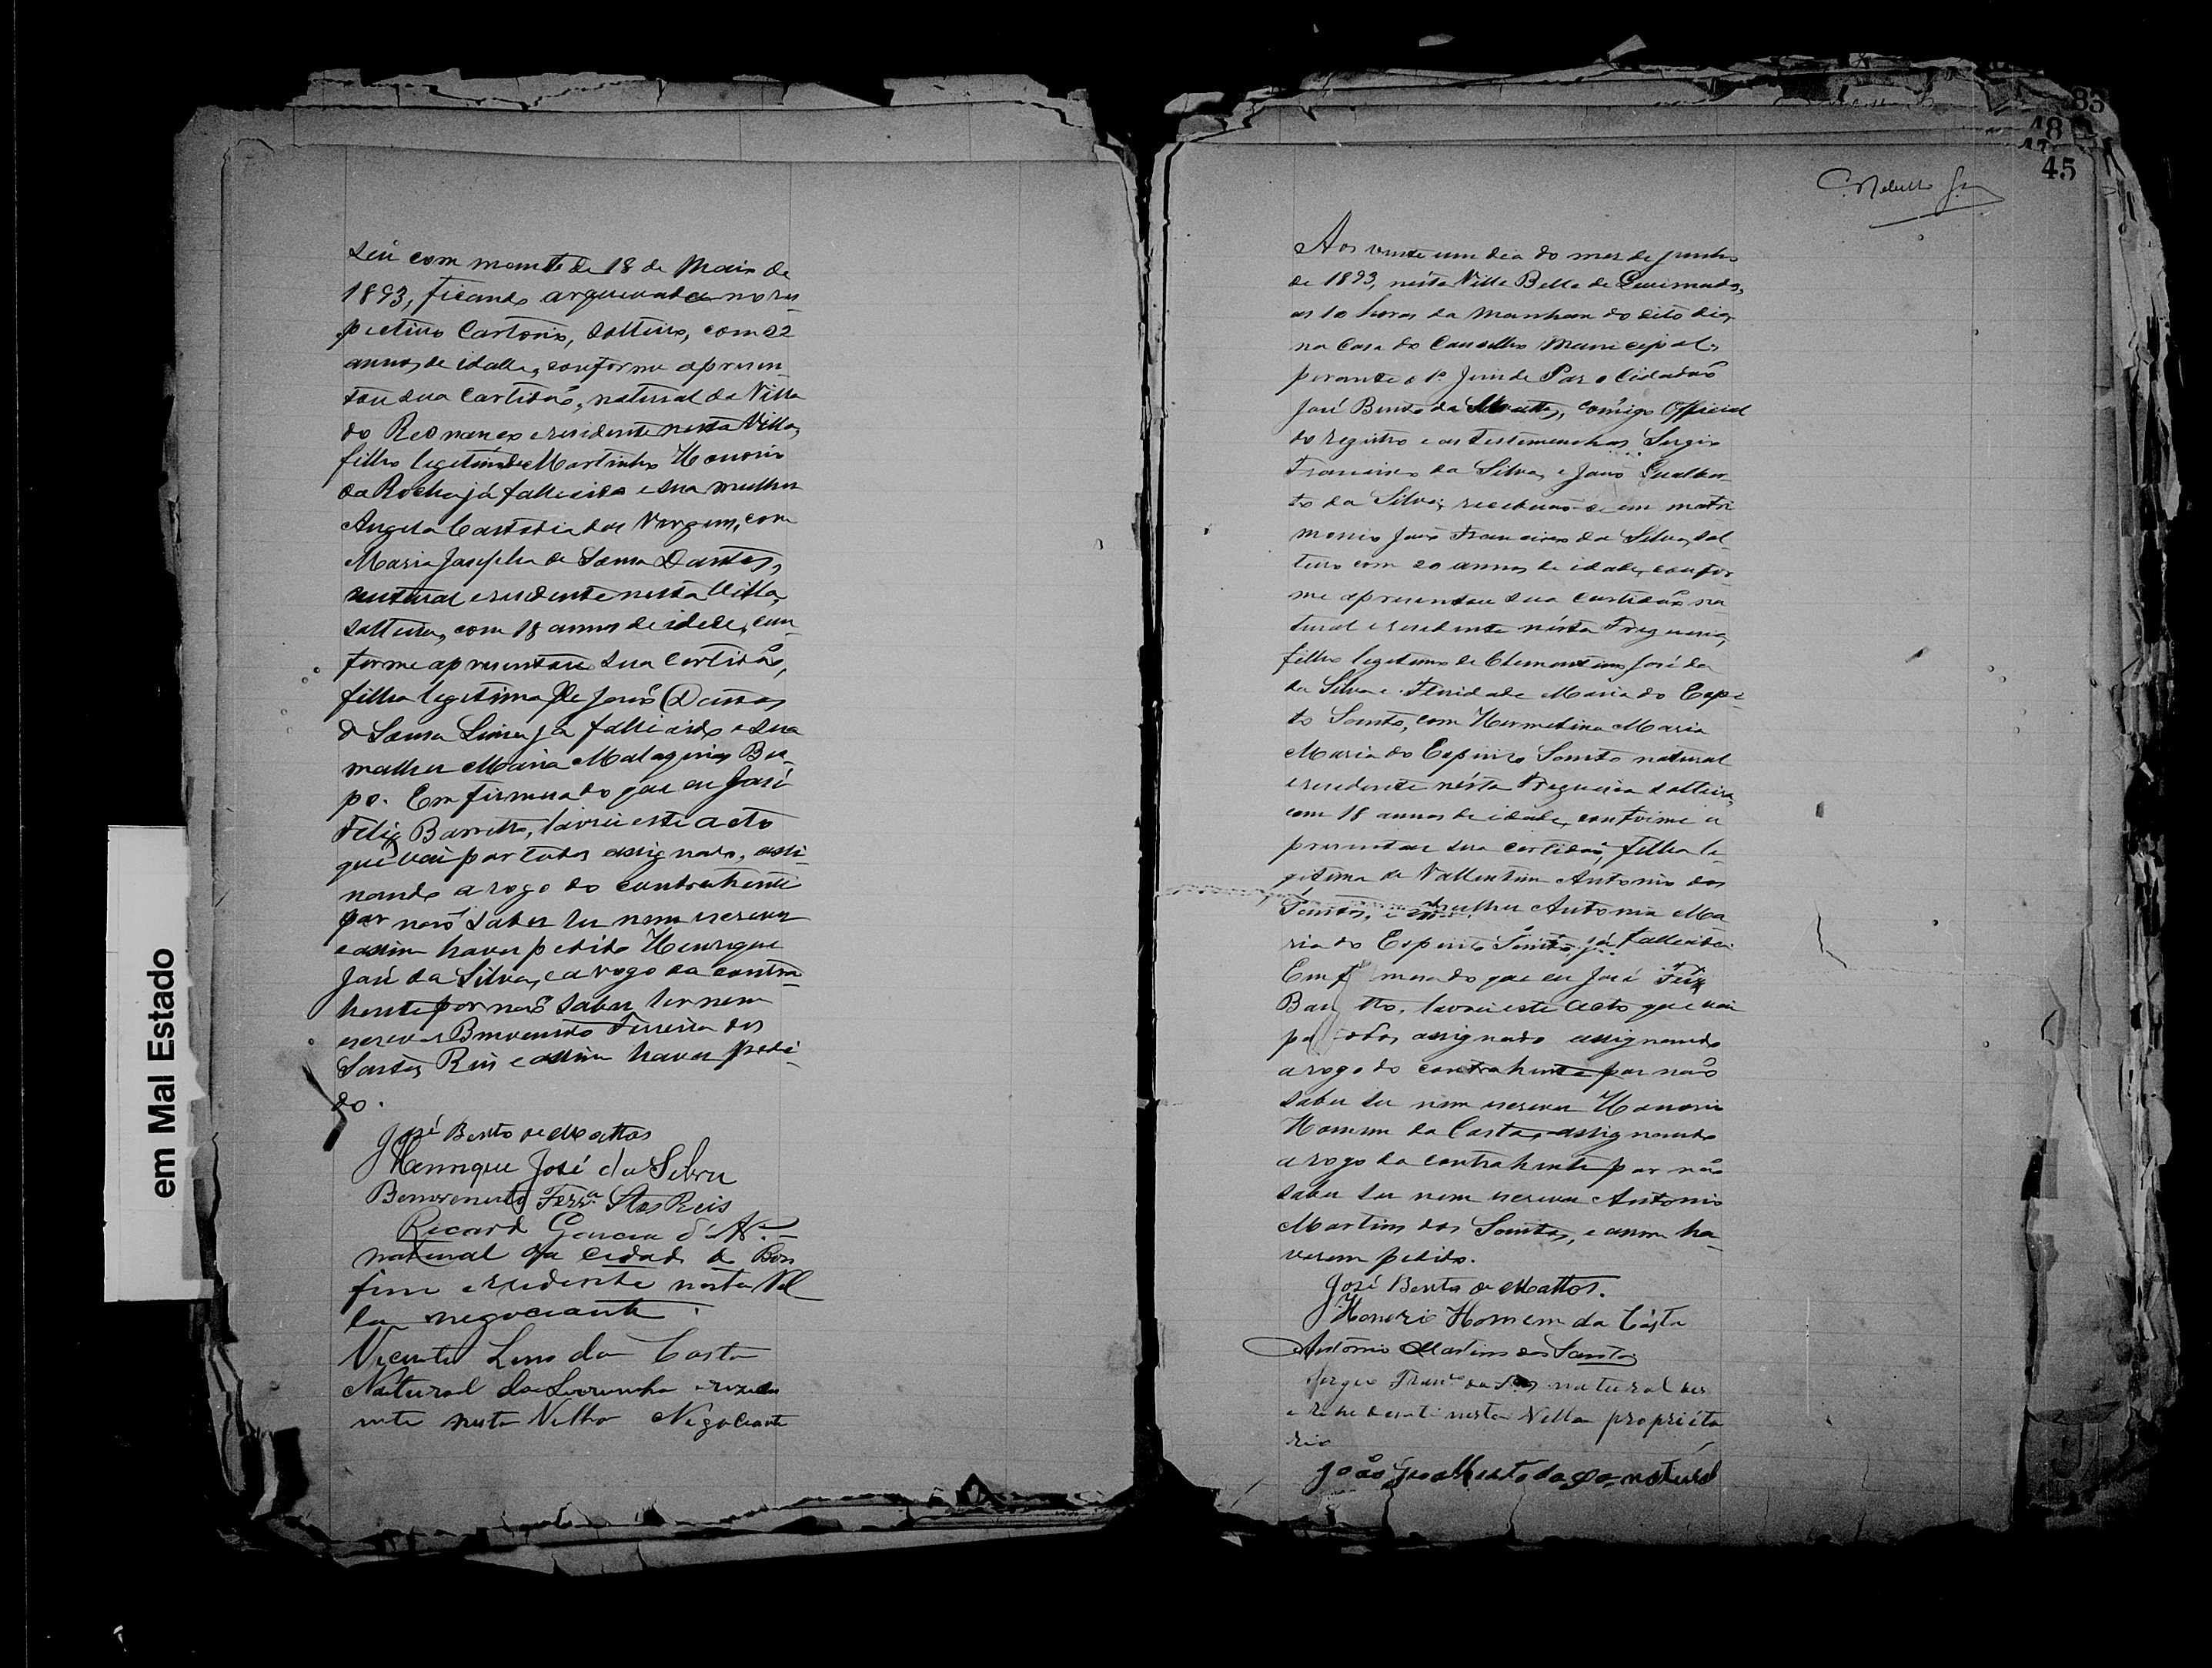 em Mal Estado
de 18 de Maio de
1893, ficando no res
pectivo Cartorio, solteiro, com 22
annos de idade, conforme apresen-
tou sua Certidão, natural da Villa
do e residente nesta Villa,
filho legitimo de Martinho Honorio
da Rocha já fallecido e sua mulher
Angela Custodia das Virgens, com
Maria Josepha de Sousa Dantas,
natural e residente nesta Villa,
solteira, com 18 annos de idade, con-
forme apresentou sua Certidão,
filha legitima de João Dantas
de Sousa Lima já fallecido e sua
mulher Maria Bis-
po. Em firmesa do que eu José
Felix Barretto, lavrei este acto
que vai por todos assignado, assi-
nando a rogo do contrahente
por não saber ler nem escrever
e assim haver pedido Henrique
José da Silva, e a rogo da contra-
hente por não saber ler nem
escrever Benvenuto Ferreira dos
Santos Reis e assim haver pedi-
do.
José Bento de Mattos
Henrique José da Silva
Benvenuto Ferrª Stos Reis
Ricard
natural da Cidade de Bom
fim e residente nesta Vil
la negociante
Vicente Lino da Costa
Natural da e rezide
nte nesta Villa Negociante
83
48
45
Aos vinte um dia do mes de Junho
de 1893, nesta Villa Bella de Queimadas,
as 10 horas da manhan do dito dia,
na Casa do Conselho Municipal,
perante o 1º Juiz de Paz o Cidadão
José Bento de Mattos, comigo Official
do registro e as testemunhas Sergio
Francisco da Silva, e João Gualber-
to da Silva, receberão-se em matri
monio João Francisco da Silva, sol-
teiro com 20 annos de idade, confor-
me apresentou sua certidão na
tural e residente nésta Freguesia,
filho legitimo de Clementino José da
da Silva e Maria do Espi
to Santo, com Hermelina Maria
Maria do Espirito Santo natural
e residente nésta Freguesia solteira,
com 18 annos de idade, conforme a
presentou sua certidão, filha le-
gitima de Vallentim Antonio dos
Santos, e mulher Antonia Ma
ria do Espirito Santo, já fallecida
Em f mesa do que eu José Felix
Bar tto, lavrei este acto que vai
po todos assignado assignando
a rogo do contrahente por não
saber ler nem escrever Honorio
Homem da Costa, assignando
a rogo da contrahente por não
saber ler nem escrever Antonio
Martins dos Santos, e assim ha-
verem pedido.
José Bento de Mattos.
Honorio Homem da Costa
Antonio Martins dos Santos
Sergio Franco da Sª natural
e residente nesta Villa proprieta
rio
João Gualberto da Sª natural